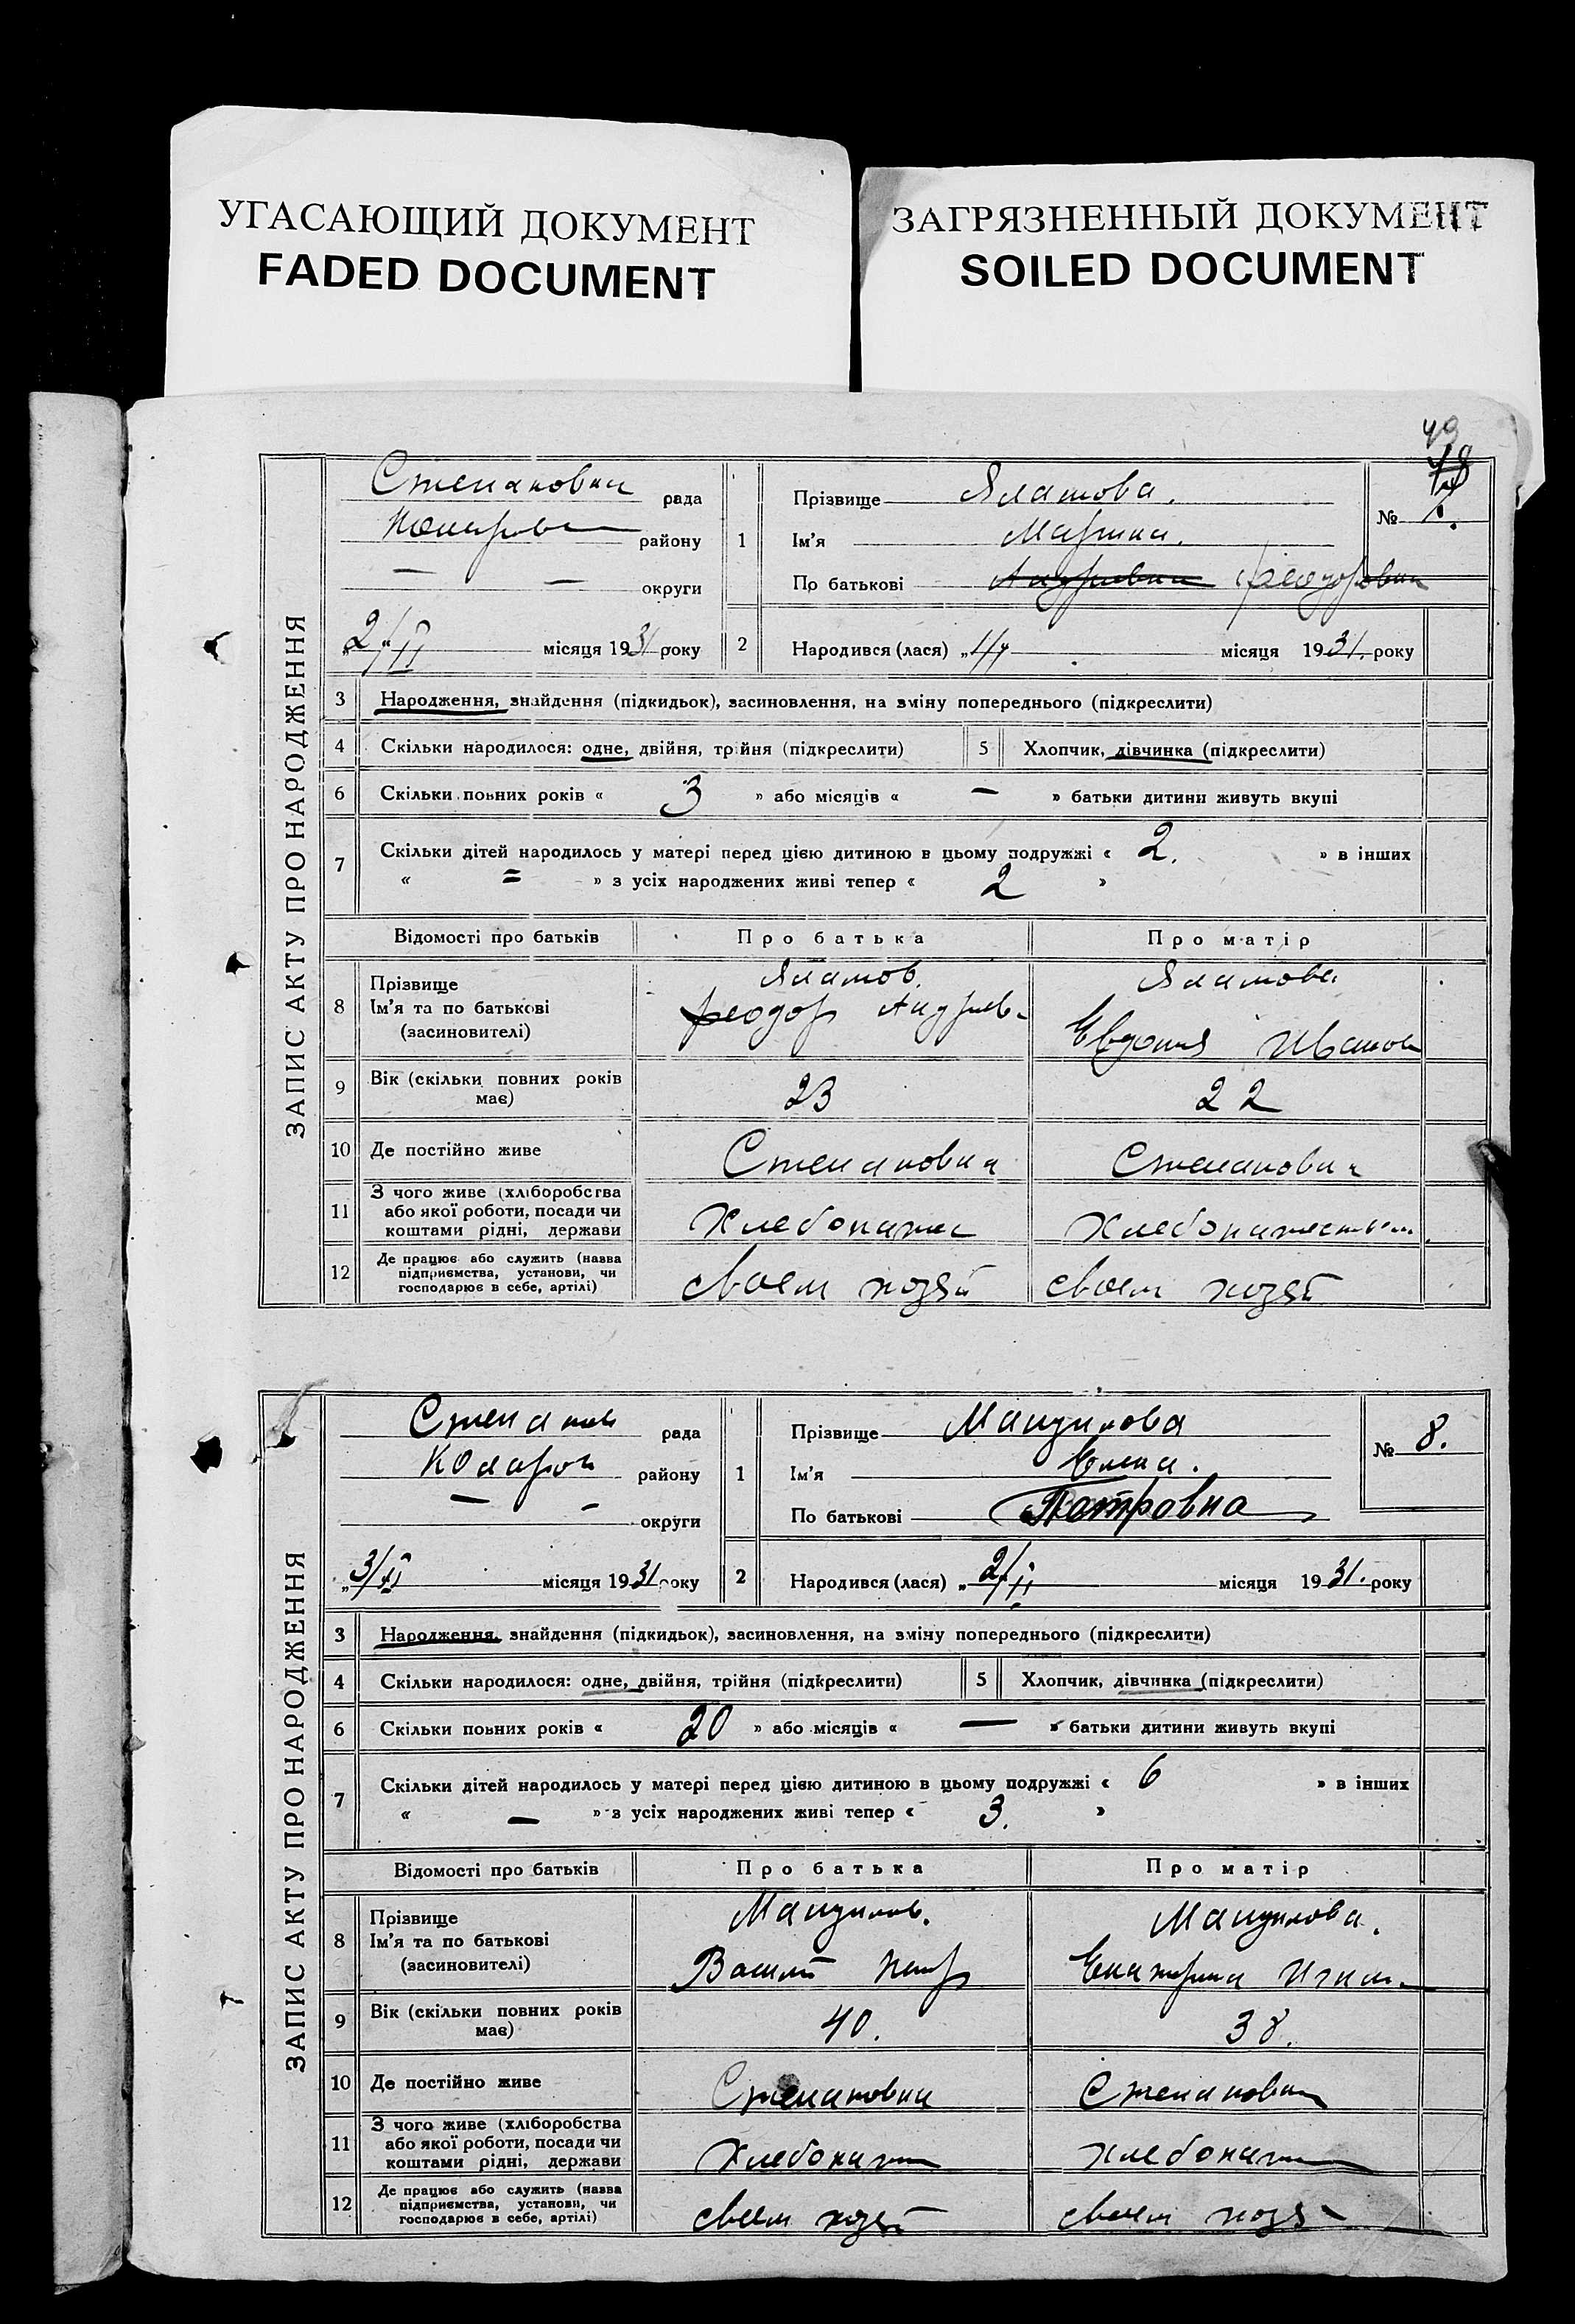 УГАСАЮЩИЙ ДОКУМЕНТ
FADED DOCUMENT
ЗАГРЯЗНЕННЫЙ ДОКУМЕНТ
SOILED DOCUMENT
49
ЗАПИС АКТУ ПРО НАРОДЖЕННЯ
Степановка рада
району
— — округи
„2/II місяця 1931 року
1 Прізвище Яламова.
Ім'я Марина.
По батькові Андриевна Феодоровна
№
2 Народився (лася) „ місяця 1931. року
3 Народження, знайдення (підкидьок), засиновлення, на зміну попереднього (підкреслити)
4 Скільки народилося: одне, двійня, трійня (підкреслити) 5 Хлопчик, дівчинка (підкреслити)
6 Скільки повних років « 3 » або місяців « — » батьки дитини живуть вкупі
7 Скільки дітей народилось у матері перед цією дитиною в цьому подружжі « 2. » в інших
« = » з усіх народжених живі тепер « 2 »
Відомості про батьків Про батька Про матір
8 Прізвище Яламов. Яламова
Ім'я та по батькові Феодор Андриев Евдокия Иванов
(засиновителі)
9 Вік (скільки повних років має) 23 22
10 Де постійно живе Степановка Степановка
11 З чого живе (хліборобства або якої роботи, посади чи коштами рідні, держави Хлебопашес Хлебопашеством
12 Де працює або служить (назва підприємства, установи, чи господарює в себе, артілі) своем хозяй своем хозяй
ЗАПИС АКТУ ПРО НАРОДЖЕННЯ
Степанов рада
району
— - округи
„3/II місяця 1931 року
1 Прізвище Манджилова
Ім'я Елена.
По батькові Петровна
№ 8.
2 Народився (лася) „2/II місяця 1931. року
3 Народження, знайдення (підкидьок), засиновлення, на зміну попереднього (підкреслити)
4 Скільки народилося: одне, двійня, трійня (підкреслити) 5 Хлопчик, дівчинка (підкреслити)
6 Скільки повних років « 20 » або місяців « — » батьки дитини живуть вкупі
7 Скільки дітей народилось у матері перед цією дитиною в цьому подружжі « 6 » в інших
« — » з усіх народжених живі тепер « 3. »
Відомості про батьків Про батька Про матір
8 Прізвище
Ім'я та по батькові Василий Петр Екатерина
(засиновителі)
9 Вік (скільки повних років має) 40. 38.
10 Де постійно живе Степановка Степановка
11 З чого живе (хліборобства або якої роботи, посади чи коштами рідні, держави Хлебопаш хлебопаш
12 Де працює або служить (назва підприємства, установи, чи господарює в себе, артілі) своем хозяй своем хозя